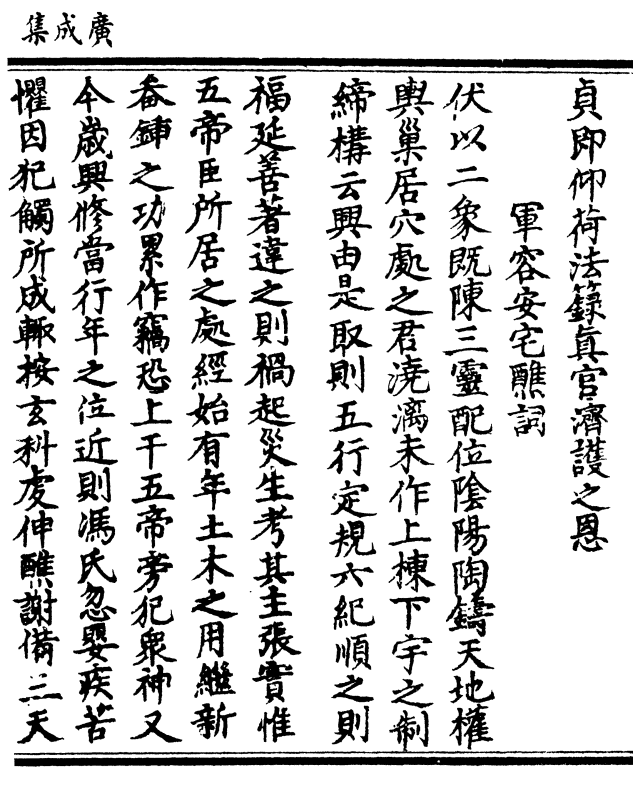 廣成集
貞即仰荷法籙眞官濟護之恩
軍容安宅醮詞
伏以二象既陳三靈配位陰陽陶鑄天地權
輿巢居穴處之君澆漓未作上棟下宇之制
締構云興由是取則五行定規六紀順之則
福延善著違之則禍起災生考其主張實惟
五帝臣所居之處經始有年土木之用繼新
畚鍤之功累作竊恐上干五帝旁犯衆神又
今歲興修當行年之位近則馮氏忽嬰疾苦
懼因犯觸所成輙按玄科虔伸醮謝備三天